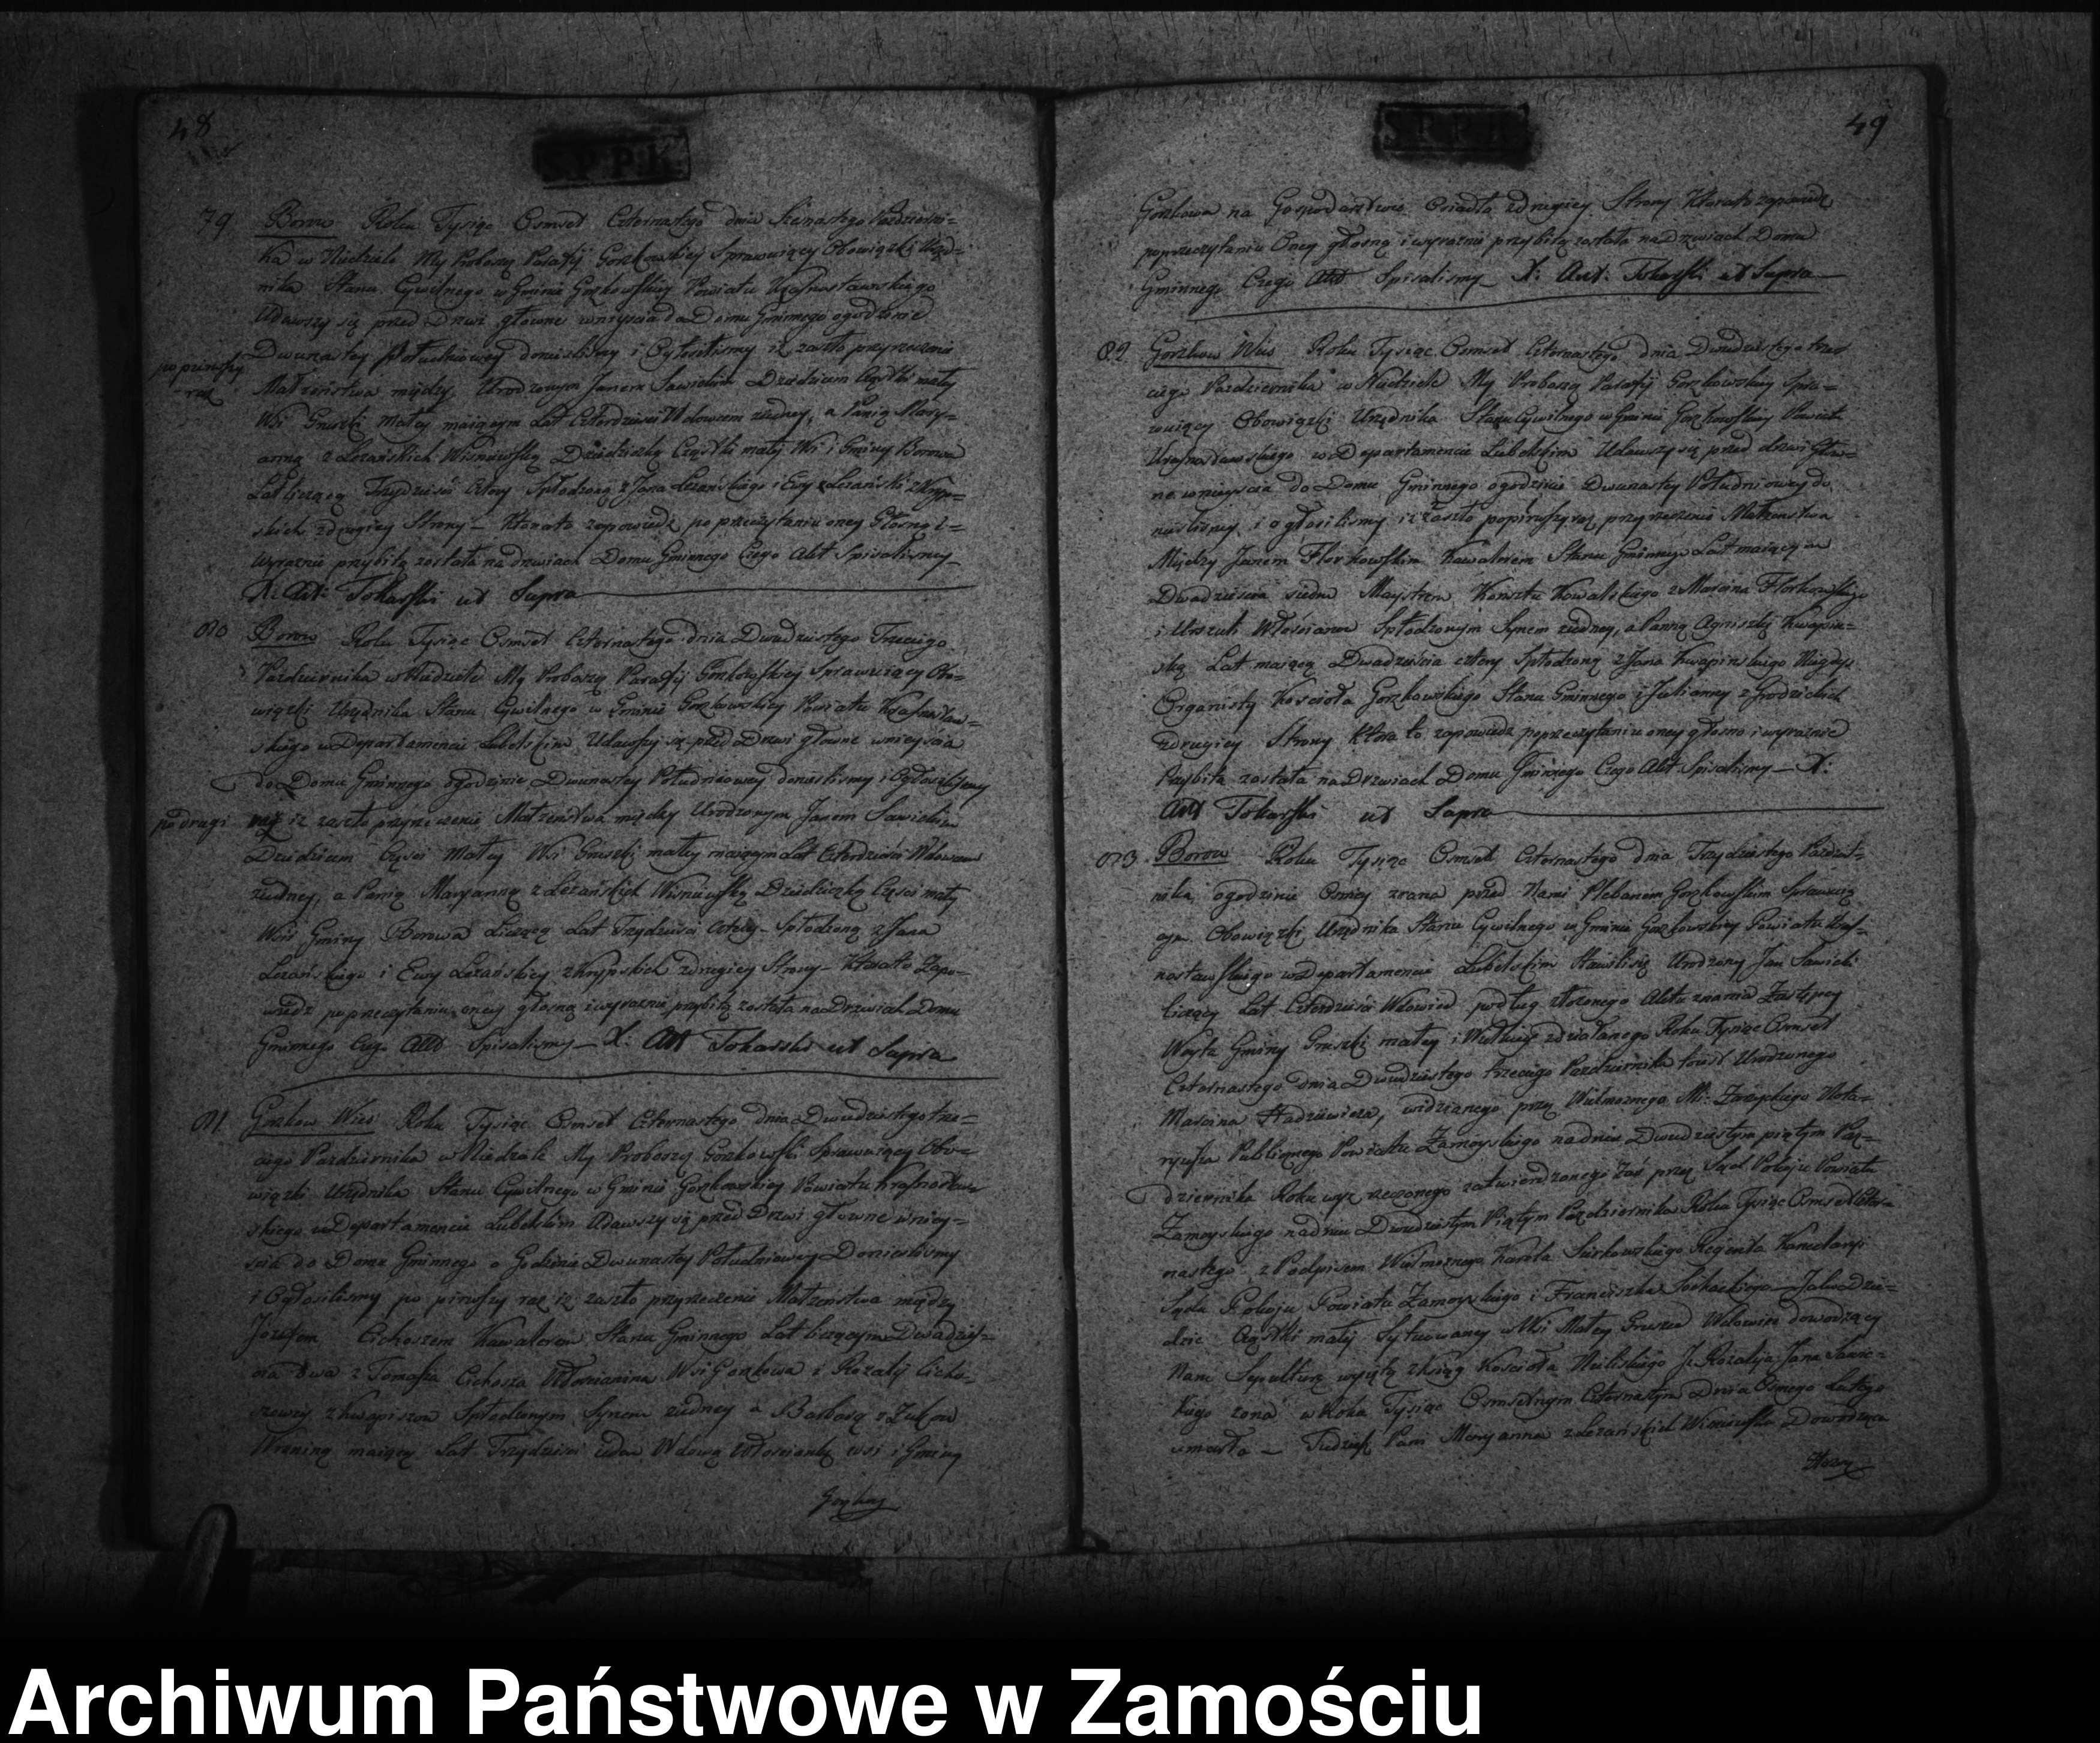 48
S.P.P.K.
79 Borow Roku Tysiąc Osmset Czternastego dnia Szesnastego Pazdzierni=
ka w Niedziele My Proboszcz Parafij Gorzkowskiey Sprawuiący Obowiązki Urzęd=
nika Stanu Cywilnego w Gminie Gorzkowskiey Powiatu Krasnostawskiego
Udawszy się przed Drzwi głowne wniyscia do Domu Gminnego o godzinie
Dwunastey Południowey donieslismy i Ogłosilismy iż zaszło przyrzeczenie
po pirwszy raz
Małzenstwa między Urodzonym Janem Sawickim Dziedzicem Cząstki małey
Wsi Gruszki małey maiącym Lat Czterdziesci Wdowcem z iedney, a Panią Mary=
anną z Lezańskich Wisniewską Dziedziczką Cząstki małey Wsi i Gminy Borowa
Lat liczącą Trzydziesci Cztery Spłodzoną z Jana Lezańskiego i Ewy Lezański z Krzyp=
skich z drugiey Strony – Ktorato zapowiedz po przeczytaniu oney Głosno i=
wyraznie przybitą została na drzwiach Domu Gminnego Czego Akt Spisalismy –
X: Ant: Tokarski ut Supra
80 Borow Roku Tysiąc Osmset Czternastego dnia Dwudziestego Trzeciego
Pazdziernika w Niedziele My Proboszcz Parafij Gorzkowskiey Sprawuiący Obo=
wiązki Urzędnika Stanu Cywilnego w Gminie Gorzkowskiey Powiatu Krasnostaw=
skiego w Departamencie Lubelskim Udawszy się przed Drzwi głowne wniyscia
do Domu Gminnego o godzinie Dwunastey Południowey donieslismy i Ogłosilismy
po drugi raz iż zaszło przyrzeczenie Małzenstwa między Urodzonym Janem Sawickim
Dziedzicem Częsci Małey Wsi Gruszki małey maiącym Lat Czterdziesci Wdowcem
z iedney, a Panią Maryanną z Lezańskich Wisniewską Dziedziczką Częsci małey
Wsi i Gminy Borowa Liczącą Lat Trzydziesci Cztery – Spłodzoną z Jana
Lezańskiego i Ewy Lezańskiey z Krzypskich z drugiey Strony – Ktorato Zapo=
wiedz po przeczytaniu oney głosno i wyraznie przybitą została na Drzwiach Domu
Gminnego Czego Akt Spisalismy – X: Ant Tokarski ut Supra
81 Gorzkow Wies Roku Tysiąc Osmset Czternastego dnia Dwudziestego trze=
ciego Pazdziernika w Niedziele My Proboszcz Gorzkowski Sprawuiący Obo=
wiązki Urzędnika Stanu Cywilnego w Gminie Gorzkowskiey Powiatu Krasnostaw=
skiego w Departamencie Lubelskim Udawszy się przed Drzwi głowne wniy=
scia do Domu Gminnego o Godzinie Dwunastey Południowey Donieslismy
i Ogłosilismy po pirwszy raz iż zaszło przyrzeczenie Małzenstwa między
Jozefem Cichoszem Kawalerem Stanu Gminnego Lat liczącym Dwadzies=
cia dwa z Tomasza Cichosza Włoscianina Wsi Gorzkowa i Rozalij Cicho=
szowey z Kwapiszow Spłodzonym Synem z iedney a Barbarą z Zukow
maiącą Lat Trzydziesci ieden Wdową Włoscianką wsi i Gminy
Gorzkowa
49
Gorzkowa na Gospodarstwie Osiadłą z drugiey Strony Ktorato zapowiedz
po przeczytaniu Oney głosno i wyraznie przybitą została na Drzwiach Domu
Gminnego Czego Akt Spisalismy – X: Ant: Tokarski ut Supra
82 Gorzkow Wies Roku Tysiąc Osmset Czternastego dnia Dwudziestego trze
ciego Pazdziernika w Niedziele My Proboszcz Parafij Gorzkowskiey Spra=
wuiący Obowiązki Urzędnika Stanu Cywilnego w Gminie Gorzkowskiey Powiatu
Krasnostawskiego w Departamencie Lubelskim Udawszy się przed drzwi Głow=
ne wniyscia do Domu Gminnego o godzinie Dwunastey Południowey do
nieslismy i ogłosilismy iż zaszło po pirwszy raz przyrzeczenie Małzenstwa
Między Janem Florkowskim Kawalerem Stanu Gminnego Lat maiącym
Dwadziescia siedm Maystrem Kunsztu Kowalskiego z Marcina Florkowskiego
i Urszuli Włoscianow Spłodzonym Synem z iedney, a Panną Agniszką Kwapin=
ską Lat maiącą Dwadziescia cztery Spłodzoną z Jana Kwapinskiego Niegdys
Organisty Kościoła Gorzkowskiego Stanu Gminnego i Julianny z Grodzickich
z drugiey Strony Ktora to zapowiedz po przeczytaniu oney głosno i wyraznie
Przybita została na Drzwiach Domu Gminnego Czego Akt Spisalismy – X:
Ant Tokarski ut Supra
83 Borow Roku Tysiąc Osmset Czternastego dnia Trzydziestego Pazdzier=
nika o godzinie Osmey zrana przed Nami Plebanem Gorzkowskim Sprawuią
cym Obowiązki Urzędnika Stanu Cywilnego w Gminie Gorzkowskiey Powiatu Kras=
nostawskiego w Departamencie Lubelskim Stawili się Urodzony Jan Sawicki
liczący Lat Czterdziesci Wdowiec podług złozonego Aktu znania Zastępcy
Woyta Gminy Gruszki małey i zdziałanego Roku Tysiąc Osmset
Czternastego dnia Dwudziestego trzeciego Pazdziernika Urodzonego
Marcina widzianego przez Wielmoznego Nota=
ryusza Publicznego Powiatu Zamoyskiego na dniu Dwudziestym piątym Paz=
dziernika Roku wyz rzeczonego zatwierdzonego zas przez Sąd Pokoju Powiatu
Zamoyskiego na dniu Dwudziestym Piątym Pazdziernika Roku Tysiąc Osmset Czter=
nastego z Podpisem Wielmoznego Karola Regenta Kancelaryi
Sądu Pokoju Powiatu Zamoyskiego i Franciszka – Jako Dzie=
dzic Cząstki małey Sytuowaney w Wsi Małey Gruszce Wdowiec dowodzący
Nam Sepulturą wyiętą z Ksiąg Kościoła Nieliskiego Iz Rozalija Jana Sawic=
kiego zona w Roku Tysiąc Osmsetnym Czternastym Dnia Osmego Lutego
umarła – Tudziesz Pani Maryanna z Lezańskich Wisniewska Dowodząca
Archiwum Państwowe w Zamościu